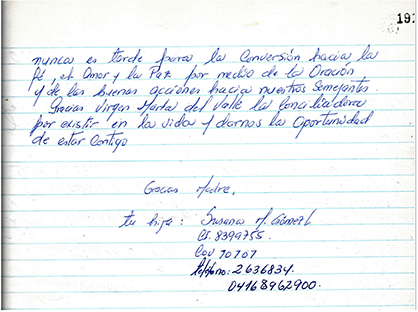 192
nunca es tarde para la Conversión hacia la
fé, el Amor y la Paz por medio de la Oración
y de las buenas acciones hacia nuestros Semejantes.
Gracias Virgen María del Valle la Conciliadora
por existir en la vida y darnos la Oportunidad
de estar Contigo
Gracias Madre,
tu hija: Susana M. Gómez L
CI. 8399755.
Cov 10707
teléfono: 2636834.
04168962900.